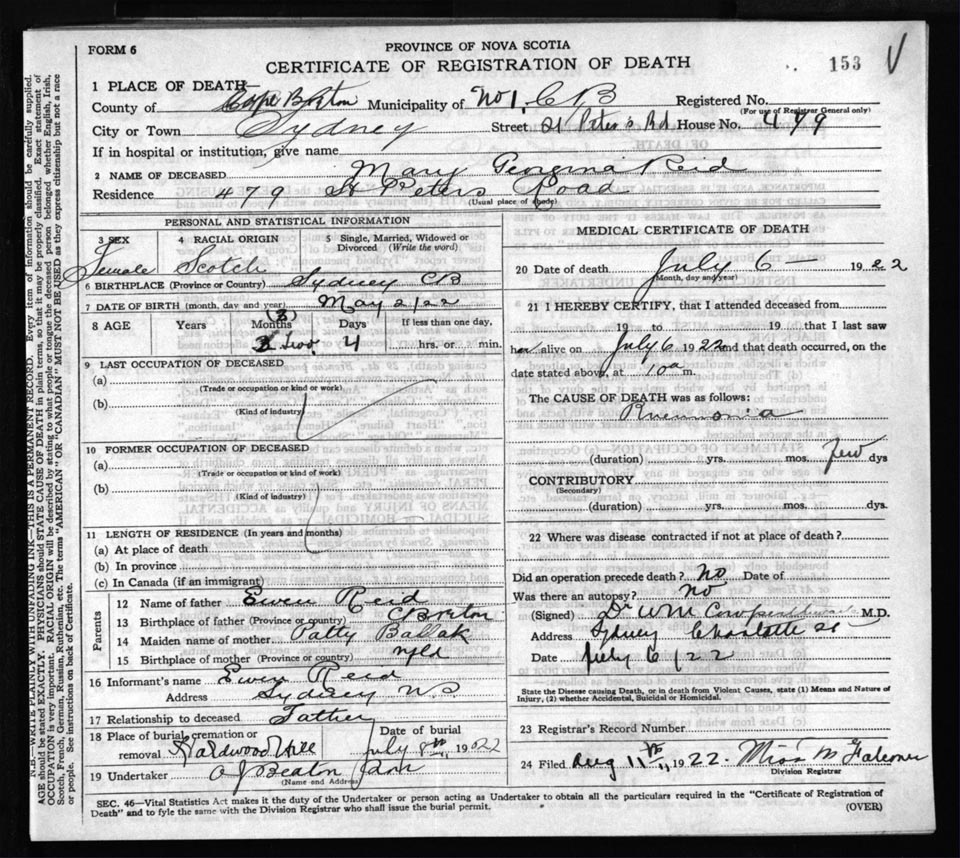 FORM 6
PROVINCE OF NOVA SCOTIA
CERTIFICATE OF REGISTRATION OF DEATH
153
1 PLACE OF DEATH
County of Cape Breton Municipality of No 1, C B Registered No.
(For use of Registrar General only)
City or Town Sydney Street St Peter's Rd House No. 479
If in hospital or institution, give name
2 NAME OF DECEASED Mary Georgina Reid
Residence 479 St Peters Road
(Usual place of abode)
PERSONAL AND STATISTICAL INFORMATION
3 SEX 4 RACIAL ORIGIN 5 Single, Married, Widowed or Divorced (Write the word)
Female Scotch
6 BIRTHPLACE (Province or Country) Sydney CB
7 DATE OF BIRTH (month, day and year) May 2/22
8 AGE Years Months Days If less than one day,
(2)
2 two 4 hrs. or min.
9 LAST OCCUPATION OF DECEASED
(a)
(Trade or occupation or kind of work)
(b)
(Kind of industry)
10 FORMER OCCUPATION OF DECEASED
(a)
(Trade or occupation or kind of work)
(b)
(Kind of industry)
11 LENGTH OF RESIDENCE (In years and months)
(a) At place of death
(b) In province
(c) In Canada (if an immigrant)
Parents
12 Name of father Ewen Reid
13 Birthplace of father (Province or country) C Breton
14 Maiden name of mother Patty Ballak
15 Birthplace of mother (Province or country) Nfld
16 Informant's name Ewen Reid
Address Sydney N S
17 Relationship to deceased Father
18 Place of burial, cremation or removal Hardwood Hill Date of burial July 8th 1922
19 Undertaker A J Beaton
(Name and Address)
MEDICAL CERTIFICATE OF DEATH
20 Date of death July 6 1922
(Month, day and year)
21 I HEREBY CERTIFY, that I attended deceased from
19 to 19 that I last saw
her alive on July 6 1922 and that death occurred, on the
date stated above, at 10 a m.
The CAUSE OF DEATH was as follows:
Pneumonia
(duration) yrs. mos. few dys
CONTRIBUTORY
(Secondary)
(duration) yrs. mos. dys.
22 Where was disease contracted if not at place of death?
Did an operation precede death? No Date of
Was there an autopsy? No
(Signed) Dr W M M.D.
Address Sydney Charlotte St
Date July 6 / 22
State the Disease causing Death, or in death from Violent Causes, state (1) Means and Nature of Injury, (2) whether Accidental, Suicidal or Homicidal.
23 Registrar's Record Number
24 Filed Aug 11th 1922. Miss M Falconer
Division Registrar
SEC. 46—Vital Statistics Act makes it the duty of the Undertaker or person acting as Undertaker to obtain all the particulars required in the "Certificate of Registration of
Death" and to fyle the same with the Division Registrar who shall issue the burial permit.
(OVER)
N.B.—WRITE PLAINLY WITH UNFADING INK—THIS IS A PERMANENT RECORD. Every item of information should be carefully supplied.
AGE should be stated EXACTLY. PHYSICIANS should STATE CAUSE OF DEATH in plain terms, so that it may be properly classified. Exact statement of
OCCUPATION is very important. RACIAL ORIGIN will be described by stating to what people or tongue the deceased person belonged whether English, Irish,
Scotch, French, German, Russian, Ruthenian, etc. The terms "AMERICAN" OR "CANADIAN" MUST NOT BE USED as they express citizenship but not a race
or people. See instructions on back of Certificate.